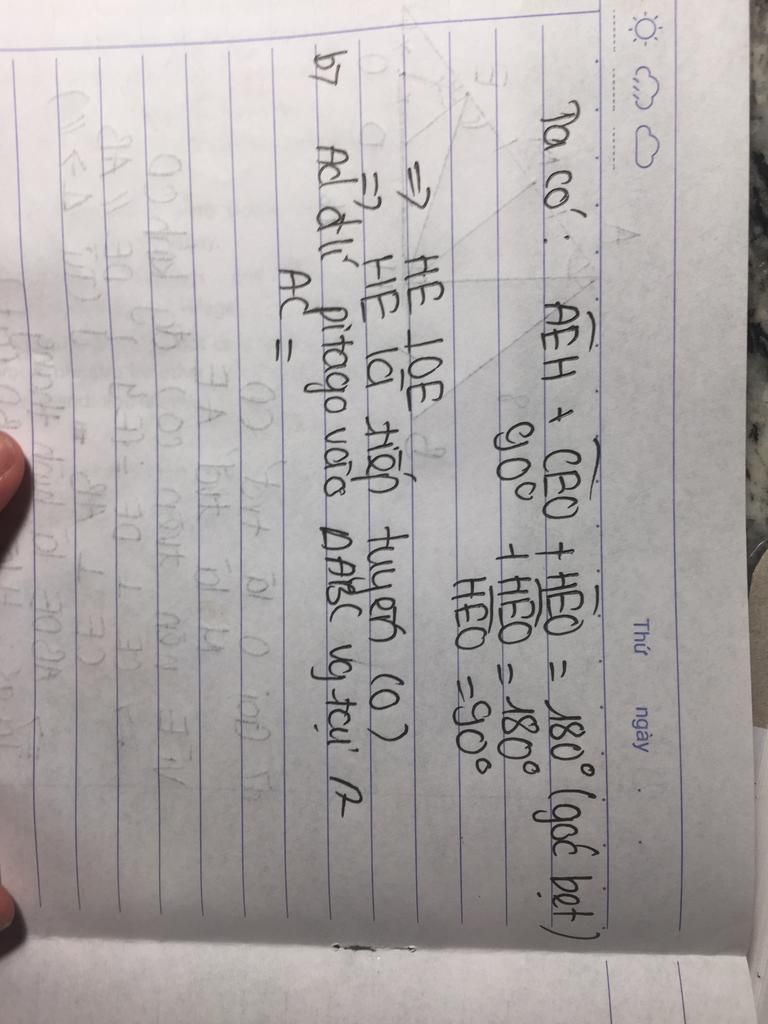 Thứ ngày
Ta có: AEH + CEO + HEO = 180° (góc bẹt)
90° + HEO = 180°
HEO = 90°
=> HE ⊥ OE
=> HE là tiếp tuyến (O)
b> Ad đlí pitago vào ΔABC vg tại A
AC =